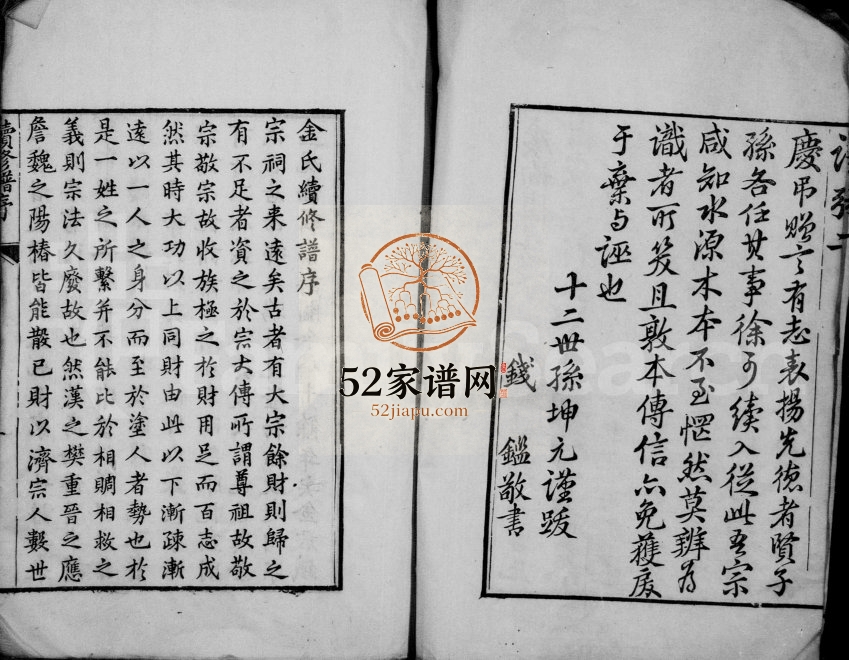 慶吊贈言有志表揚先德者賢子
孫各任其事徐可續入從此吾宗
咸知水源木本不至惘然莫辨為
識者所笑且敦本傳信亦免獲戾
于棄與誣也
十二世孫坤元謹跋
錢鑑敬書
金氏續修譜序
宗祠之来遠矣古者有大宗餘財則歸之
有不足者資之於宗大傳所謂尊祖故敬
宗敬宗故收族極之於財用足而百志成
然其時大功以上同財由此以下漸疎漸
遠以一人之身分而至於塗人者勢也於
是一姓之所繫并不能比於相賙相救之
義則宗法久廢故也然漢之樊重晉之應
詹魏之陽椿皆能散已財以濟宗人數世
續修譜序
52家谱网
52jiapu.com